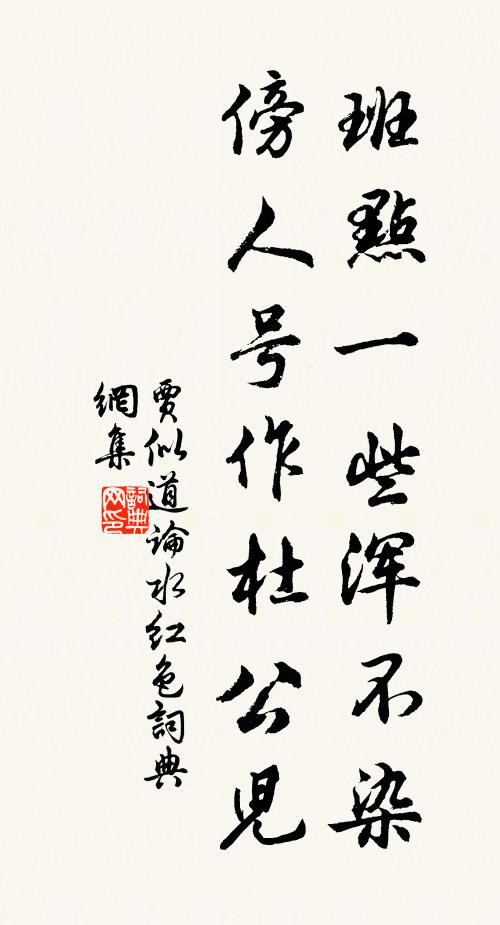 班點一些浑不染
傍人号作杜公児
賈似道論水红色詞典
網集
詞典
网印